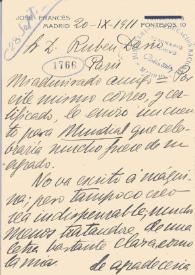 JOSÉ FRANCÉS
MADRID 20-IX-1911 PONTEJOS 10
Sr D. Rubén Darío
1766 Paris
Mi admirado amigo: Por
este mismo correo, y cer-
tificado, le envio un cuen-
to para Mundial que cele-
braria mucho fuere de su
agrado.
No va escrito a máqui-
na; pero tampoco creo
sea indispensable, mucho
menos tratandose, de una
letra bastante clara como
la mia
de agradeceria